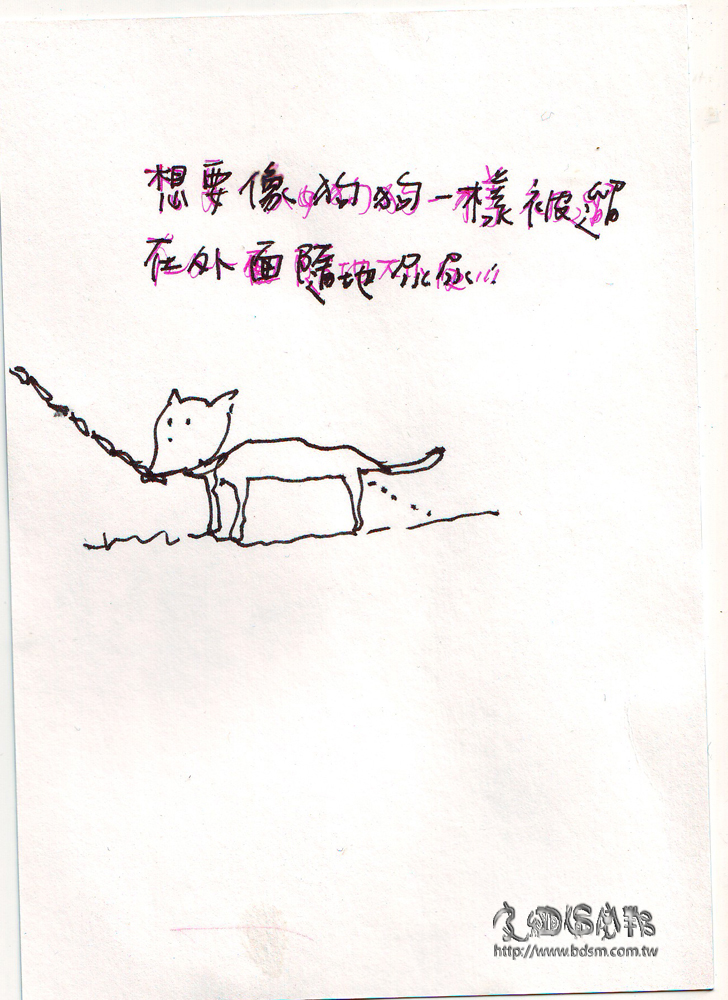 想要像狗狗一樣被遛
在外面隨地尿尿...
BDSM
http://www.bdsm.com.tw